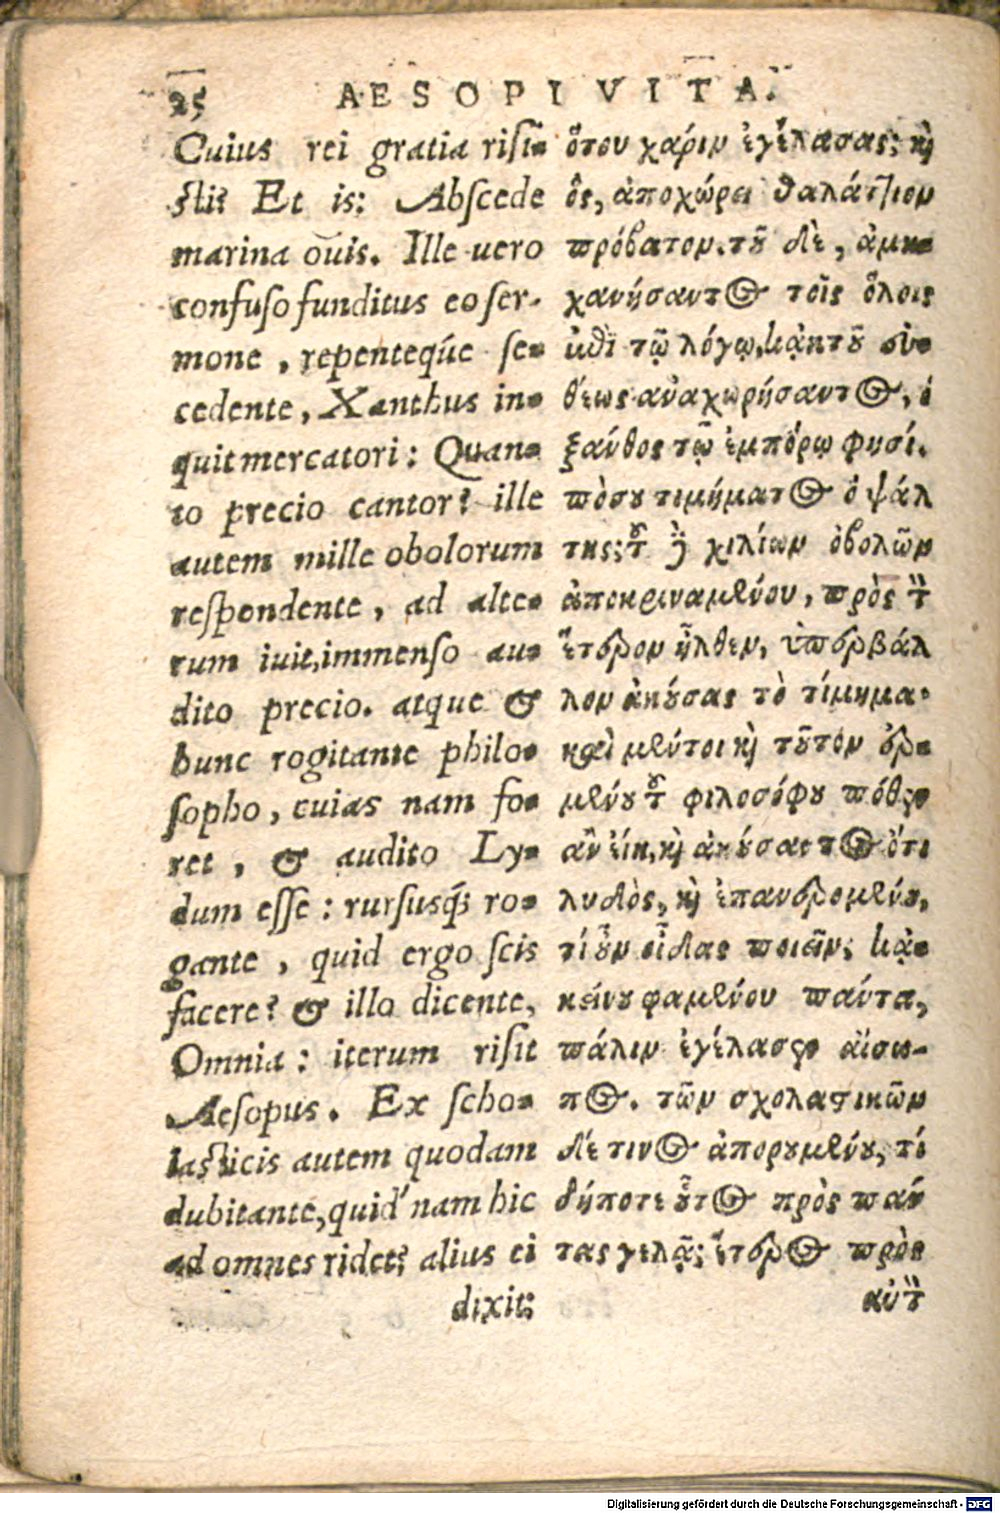 25 AESOPI VITA.
Cuius rei gratia risi-
stis? Et is: Abscede
marina ouis. Ille uero
confuso funditus eo ser-
mone, repenteq́ue se-
cedente, Xanthus in-
quit mercatori: Quan-
to precio cantor? ille
autem mille obolorum
respondente, ad alte-
rum iuit, immenso au-
dito precio. atque &
hunc rogitante philo-
sopho, cuias nam fo-
ret, & audito Ly-
dum esse: rursusq́; ro-
gante, quid ergo scis
facere? & illo dicente,
Omnia: iterum risit
Aesopus. Ex scho-
lasticis autem quodam
dubitante, quid nam hic
ad omnes ridet? alius ei
dixit:
ὅτου χάριν ἐγέλασας; καὶ
ὃς, ἀποχώρει θαλάττιον
πρόβατον. τοῦ δὲ, ἀμη-
χανήσαντος τοῖς ὅλοις
ἐπὶ τῷ λόγῳ, κἀκ τοῦ εὐ-
θέως ἀναχωρήσαντος, ὁ
ξάνθος τῷ ἐμπόρῳ φησί.
πόσου τιμήματος ὁ ψάλ
της; τοῦ δὲ χιλίων ὀβολῶν
ἀποκριναμένου, πρὸς τὸν
ἕτερον ἦλθεν, ὑπερβάλ
λον ἀκούσας τὸ τίμημα.
καὶ μέντοι καὶ τοῦτον ἐρο-
μένου τοῦ φιλοσόφου πόθεν
ἂν εἴη, καὶ ἀκούσαντος ὅτι
λυδὸς, καὶ ἐπανερομένου,
τί οὖν οἶδας ποιεῖν; κἀ-
κείνου φαμένου πάντα,
πάλιν ἐγέλασεν αἴσω-
πος. τῶν σχολαστικῶν
δέ τινος ἀπορουμένου, τί
δήποτε οὗτος πρὸς πάν
τας γελᾷ; ἕτερος πρὸς
αὐτὸν
Digitalisierung gefördert durch die Deutsche Forschungsgemeinschaft - DFG